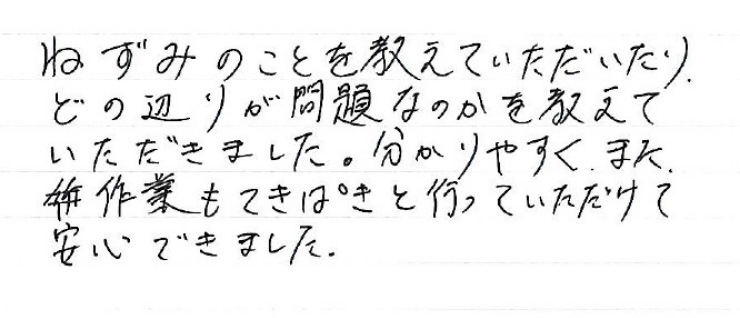 ねずみのことを教えていただいたり、
どの辺りが問題なのかを教えて
いただきました。分かりやすく、また、
作業もてきぱきと行っていただけて
安心できました。